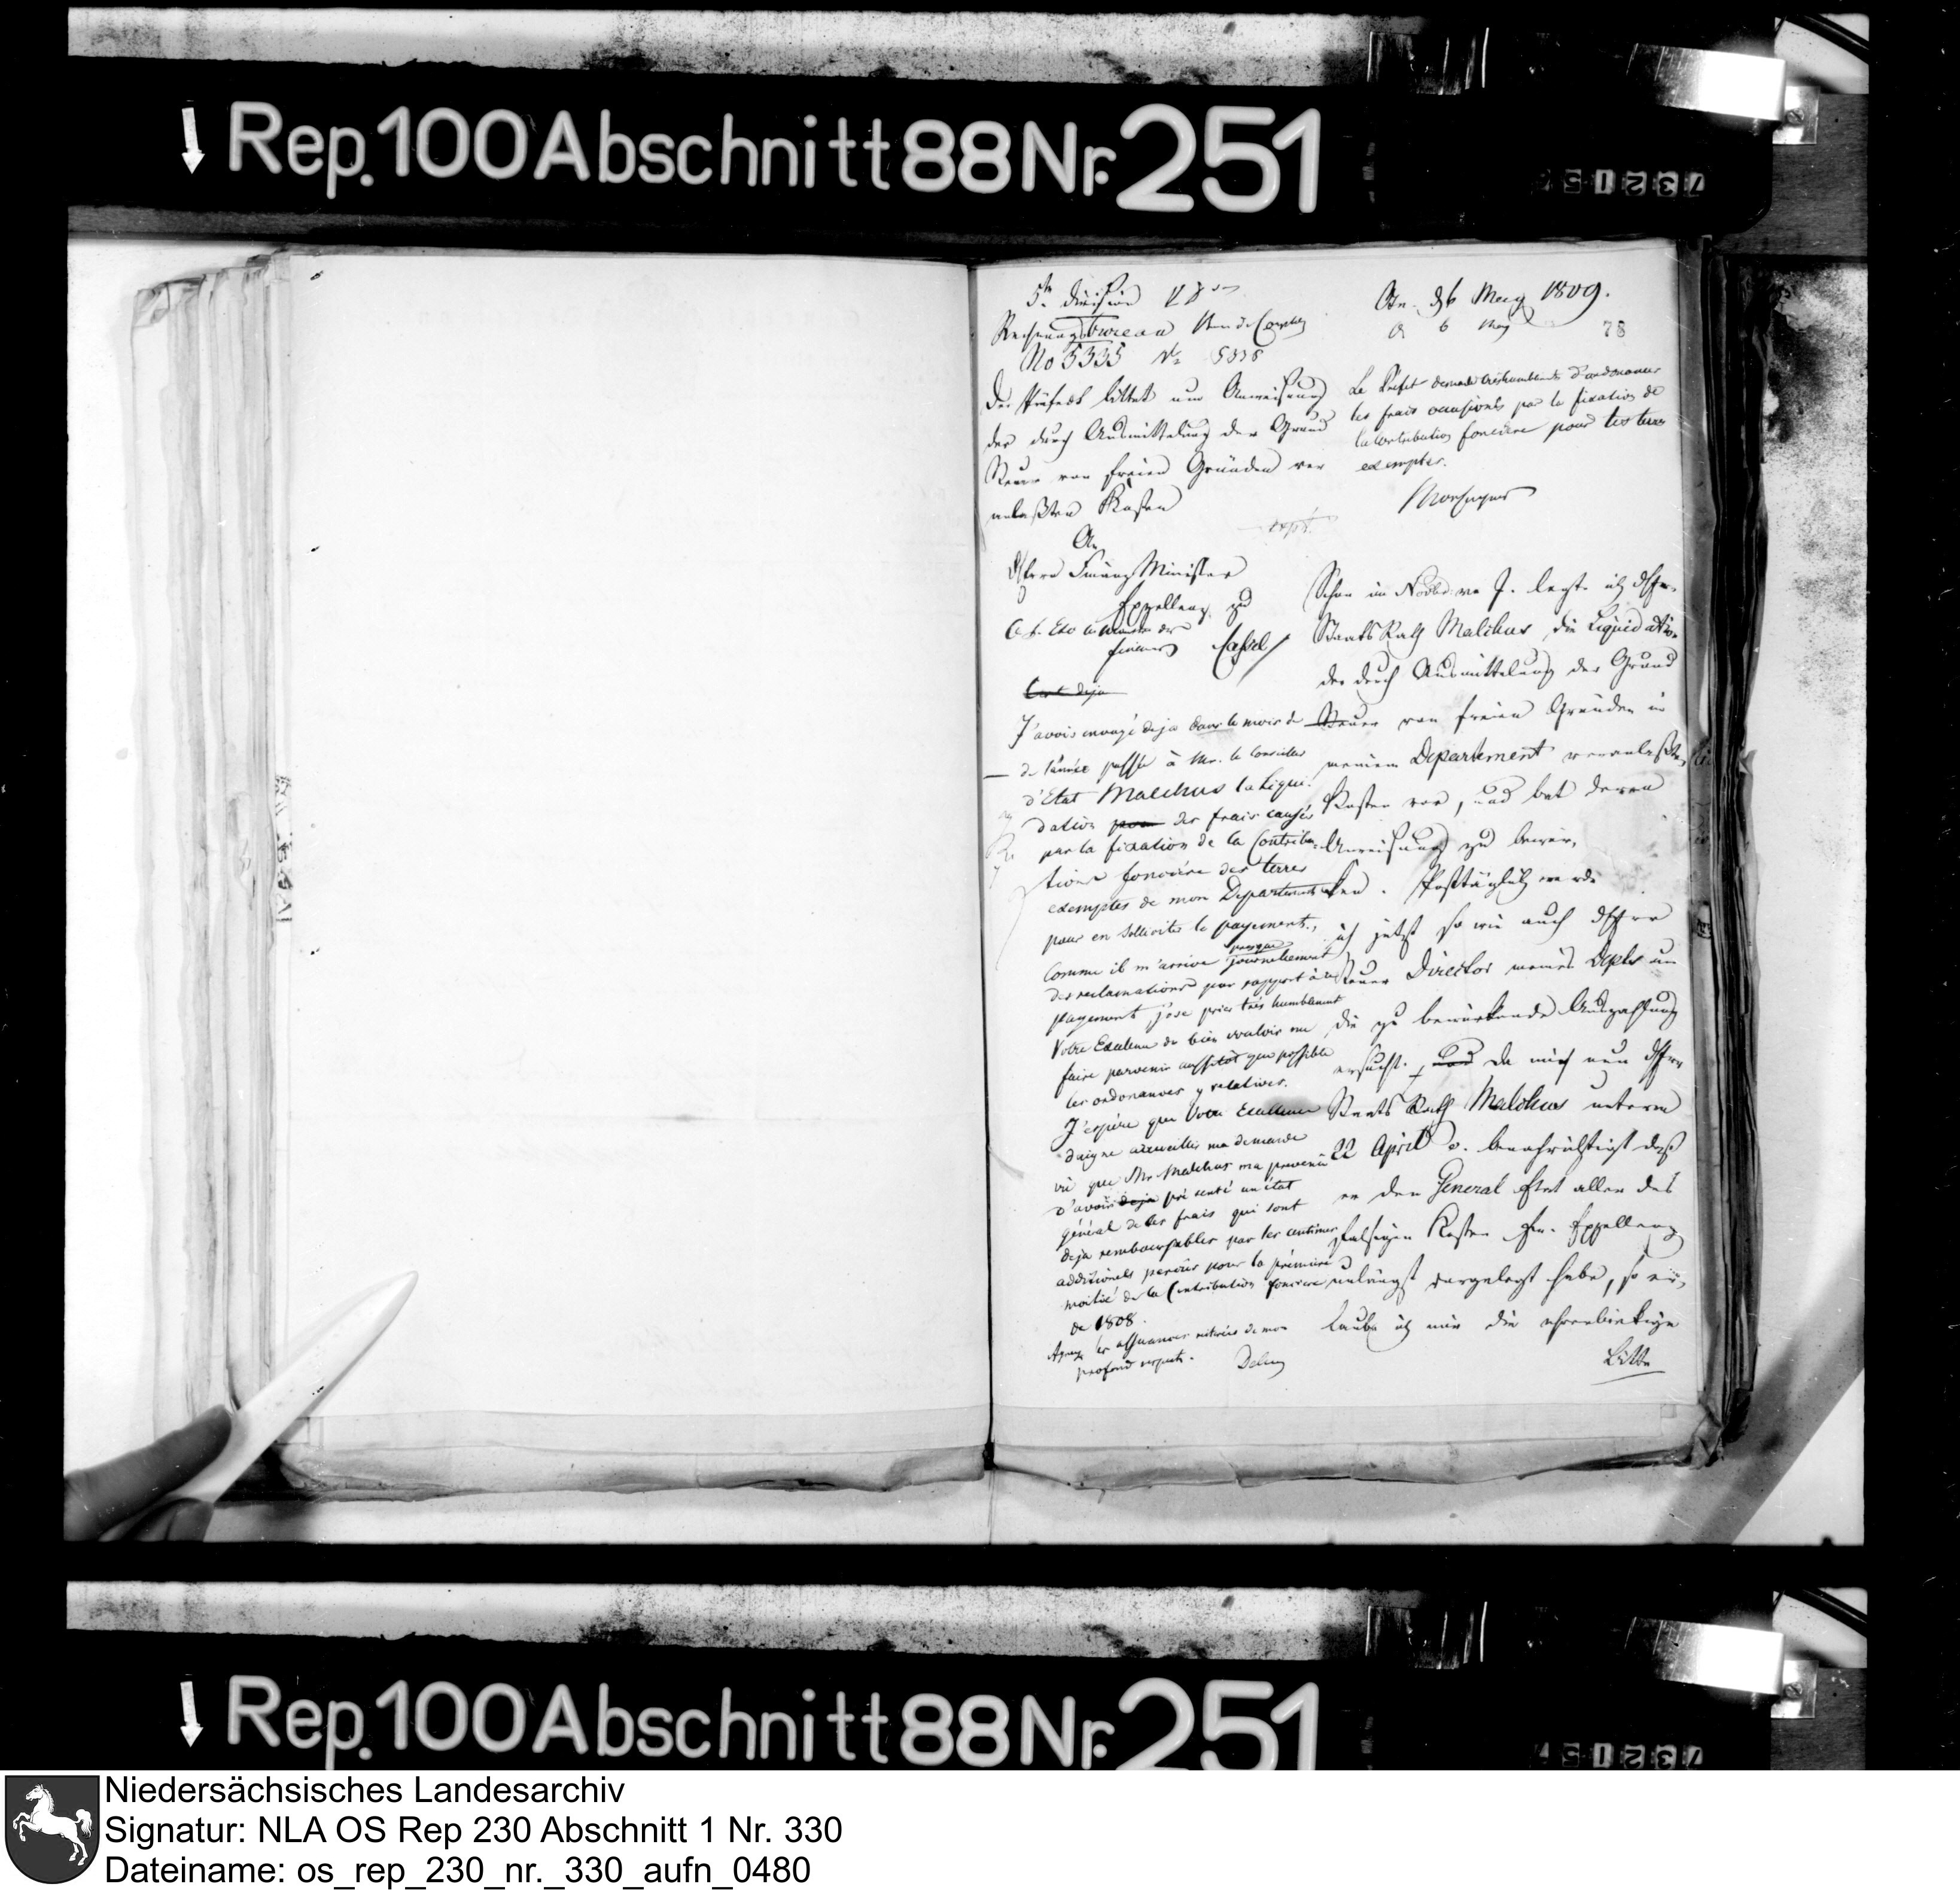 Rep. 100 Abschnitt 88 Nr. 251
5te Division
Rechnungsbureau
No 5335 No 5335
Osn. d 6 May 1809.
6 May
78
Der Präfect bittet um Anweisung
der durch Ausmittelung der Grund
Steuer von freien Gründen ver
anlaßten Kosten
Le Préfet demande très humblement d'ordonancer
les frais occasionés par la fixation de
la contribution foncière pour les terres
exemptes.
Monseigneur
An
Herrn Finanz Minister
Exzellenz zu
Cassel
A S. Exc le ministre des
finances
C'est deja
J'avois envoyé deja dans le mois de
de l'année passée à Mr. le Conseiller
d'Etat Malchus la Liqui-
dation pour des frais causés
par la fixation de la Contribu-
tions foncière des terres
exemptes de mon Departement
pour en solliciter le payement.
Comme il m'arrive presque journellement
des reclamations par rapport à ce
payement j'ose prier très humblement
Votre Excellence de bien vouloir me
faire parvenir aussitôt que possible
les ordonances y relatives.
J'espère que Votre Excellence
daigne accueillir ma demande
vû que Mr Malchus m'a prevenu
d'avoir deja présenté un état
général de les frais qui sont
deja remboursables par les centimes
additionels percus pour la première
moitié de la Contribution foncière
de 1808.
Agreez les assurances réiterées de mon
profond respect.
Schon im Novbr. v. J. legte ich Hrn.
Staats Rath Malchus die Liquidation
der durch Ausmittelung der Grund
Steuer von freien Gründen in
meinem Departement veranlaßten
Kosten vor, und bat deren
Anweisung zu bewir-
ken. Posttäglich werde
ich jetzt so wie auch Herr
Steuer Director meines Depts um
die zu bewirkende Auszahlung
ersucht. und Da mich nun Herr
Staats Rath Malchus unterm
22 April c. benachrichtigt daß
er den General Etat aller des
falsigen Kosten Ew. Exzellenz
unlängst vorgelegt habe, so er-
laube ich mir die ehrerbietige
Bitte
Rep. 100 Abschnitt 88 Nr. 251
Niedersächsisches Landesarchiv
Signatur: NLA OS Rep 230 Abschnitt 1 Nr. 330
Dateiname: os_rep_230_nr._330_aufn_0480